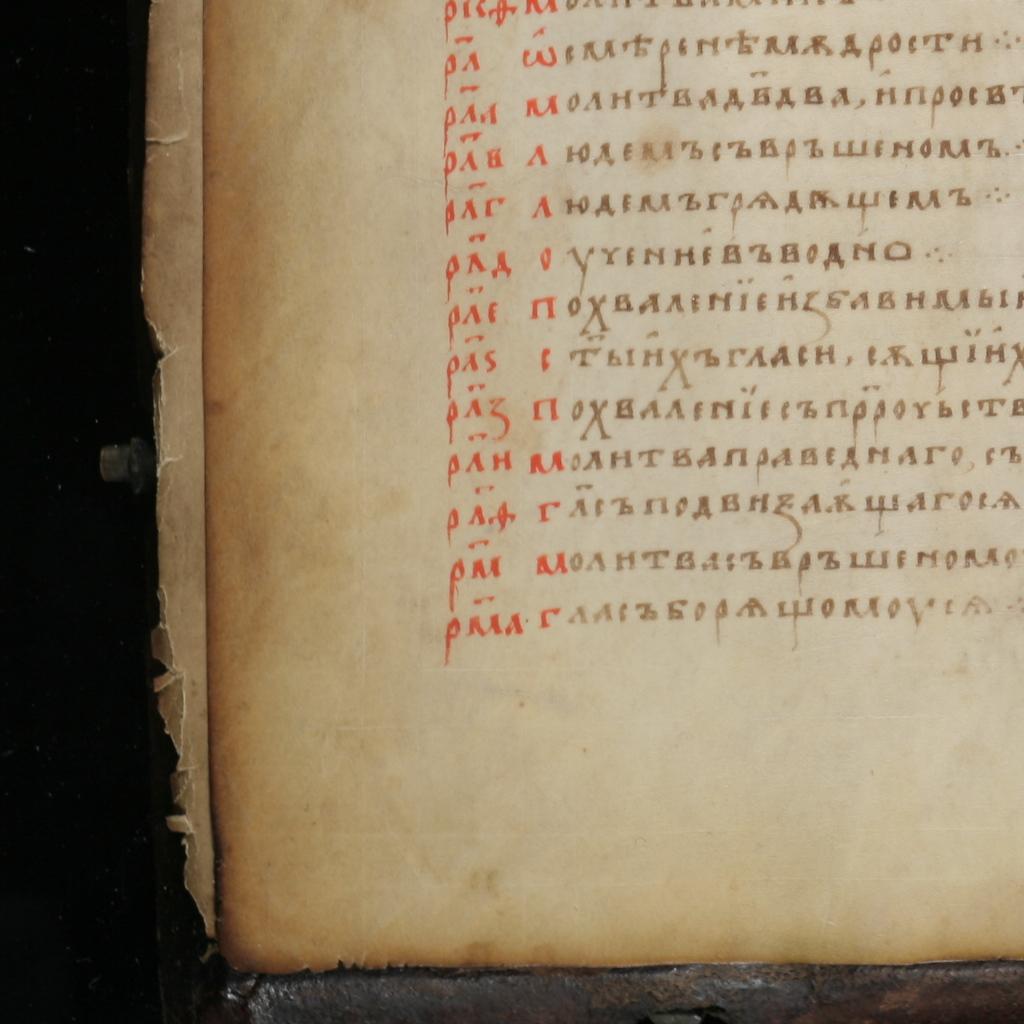 рл҃ ѡ҆смѣренѣмѫдрости ⁘
рл҃а молитвадв҃два, и҆просвѣ
рл҃в людемъсъвръшеномъ ⁘
рл҃г людемъгрядѫщемъ ⁘
рл҃д оучение҆въводно ⁘
рл҃е похваленїеи҆ꙁбавимыи
рл҃ѕ ст҃ыи҆хъгласи, сѫщїи҆х
рл҃ꙁ похваленїесъпрⷪ҇роучьств
рл҃и молитваправеднаго, съ
рл҃ѳ гл҃съподвиꙁаѫ҆щагосѧ
рм҃ молитвасъвръшеномоу
рм҃а гласъборѧщомоусѧ